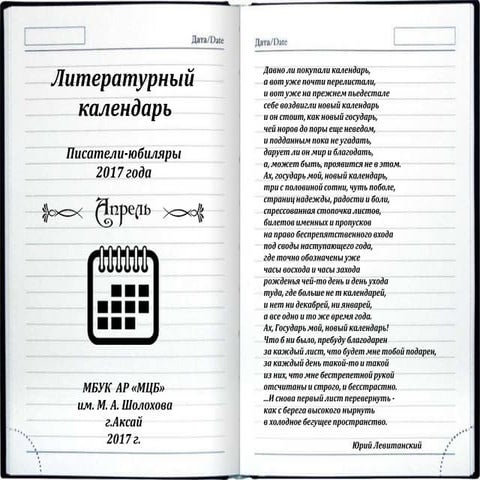 Дата/Date
Литературный
календарь
Писатели-юбиляры
2017 года
Апрель
МБУК АР «МЦБ»
им. М. А. Шолохова
г.Аксай
2017 г.
Дата/Date
Давно ли покупали календарь,
а вот уже почти перелистали,
и вот уже на прежнем пьедестале
себе воздвигли новый календарь
и он стоит, как новый государь,
чей норов до поры еще неведом,
и подданным пока не угадать,
дарует ли он мир и благодать,
а, может быть, проявится не в этом.
Ах, государь мой, новый календарь,
три с половиной сотни, чуть поболе,
страниц надежды, радости и боли,
спрессованная стопочка листов,
билетов именных и пропусков
на право беспрепятственного входа
под своды наступающего года,
где точно обозначены уже
часы восхода и часы захода
рожденья чей-то день и день ухода
туда, где больше не т календарей,
и нет ни декабрей, ни январей,
а все одно и то же время года.
Ах, Государь мой, новый календарь!
Что б ни было, пребуду благодарен
за каждый лист, что будет мне тобой подарен,
за каждый день такой-то и такой
из них, что мне бестрепетной рукой
отсчитаны и строго, и бесстрастно.
...И снова первый лист перевернуть -
как с берега высокого нырнуть
в холодное бегущее пространство.
Юрий Левитанский